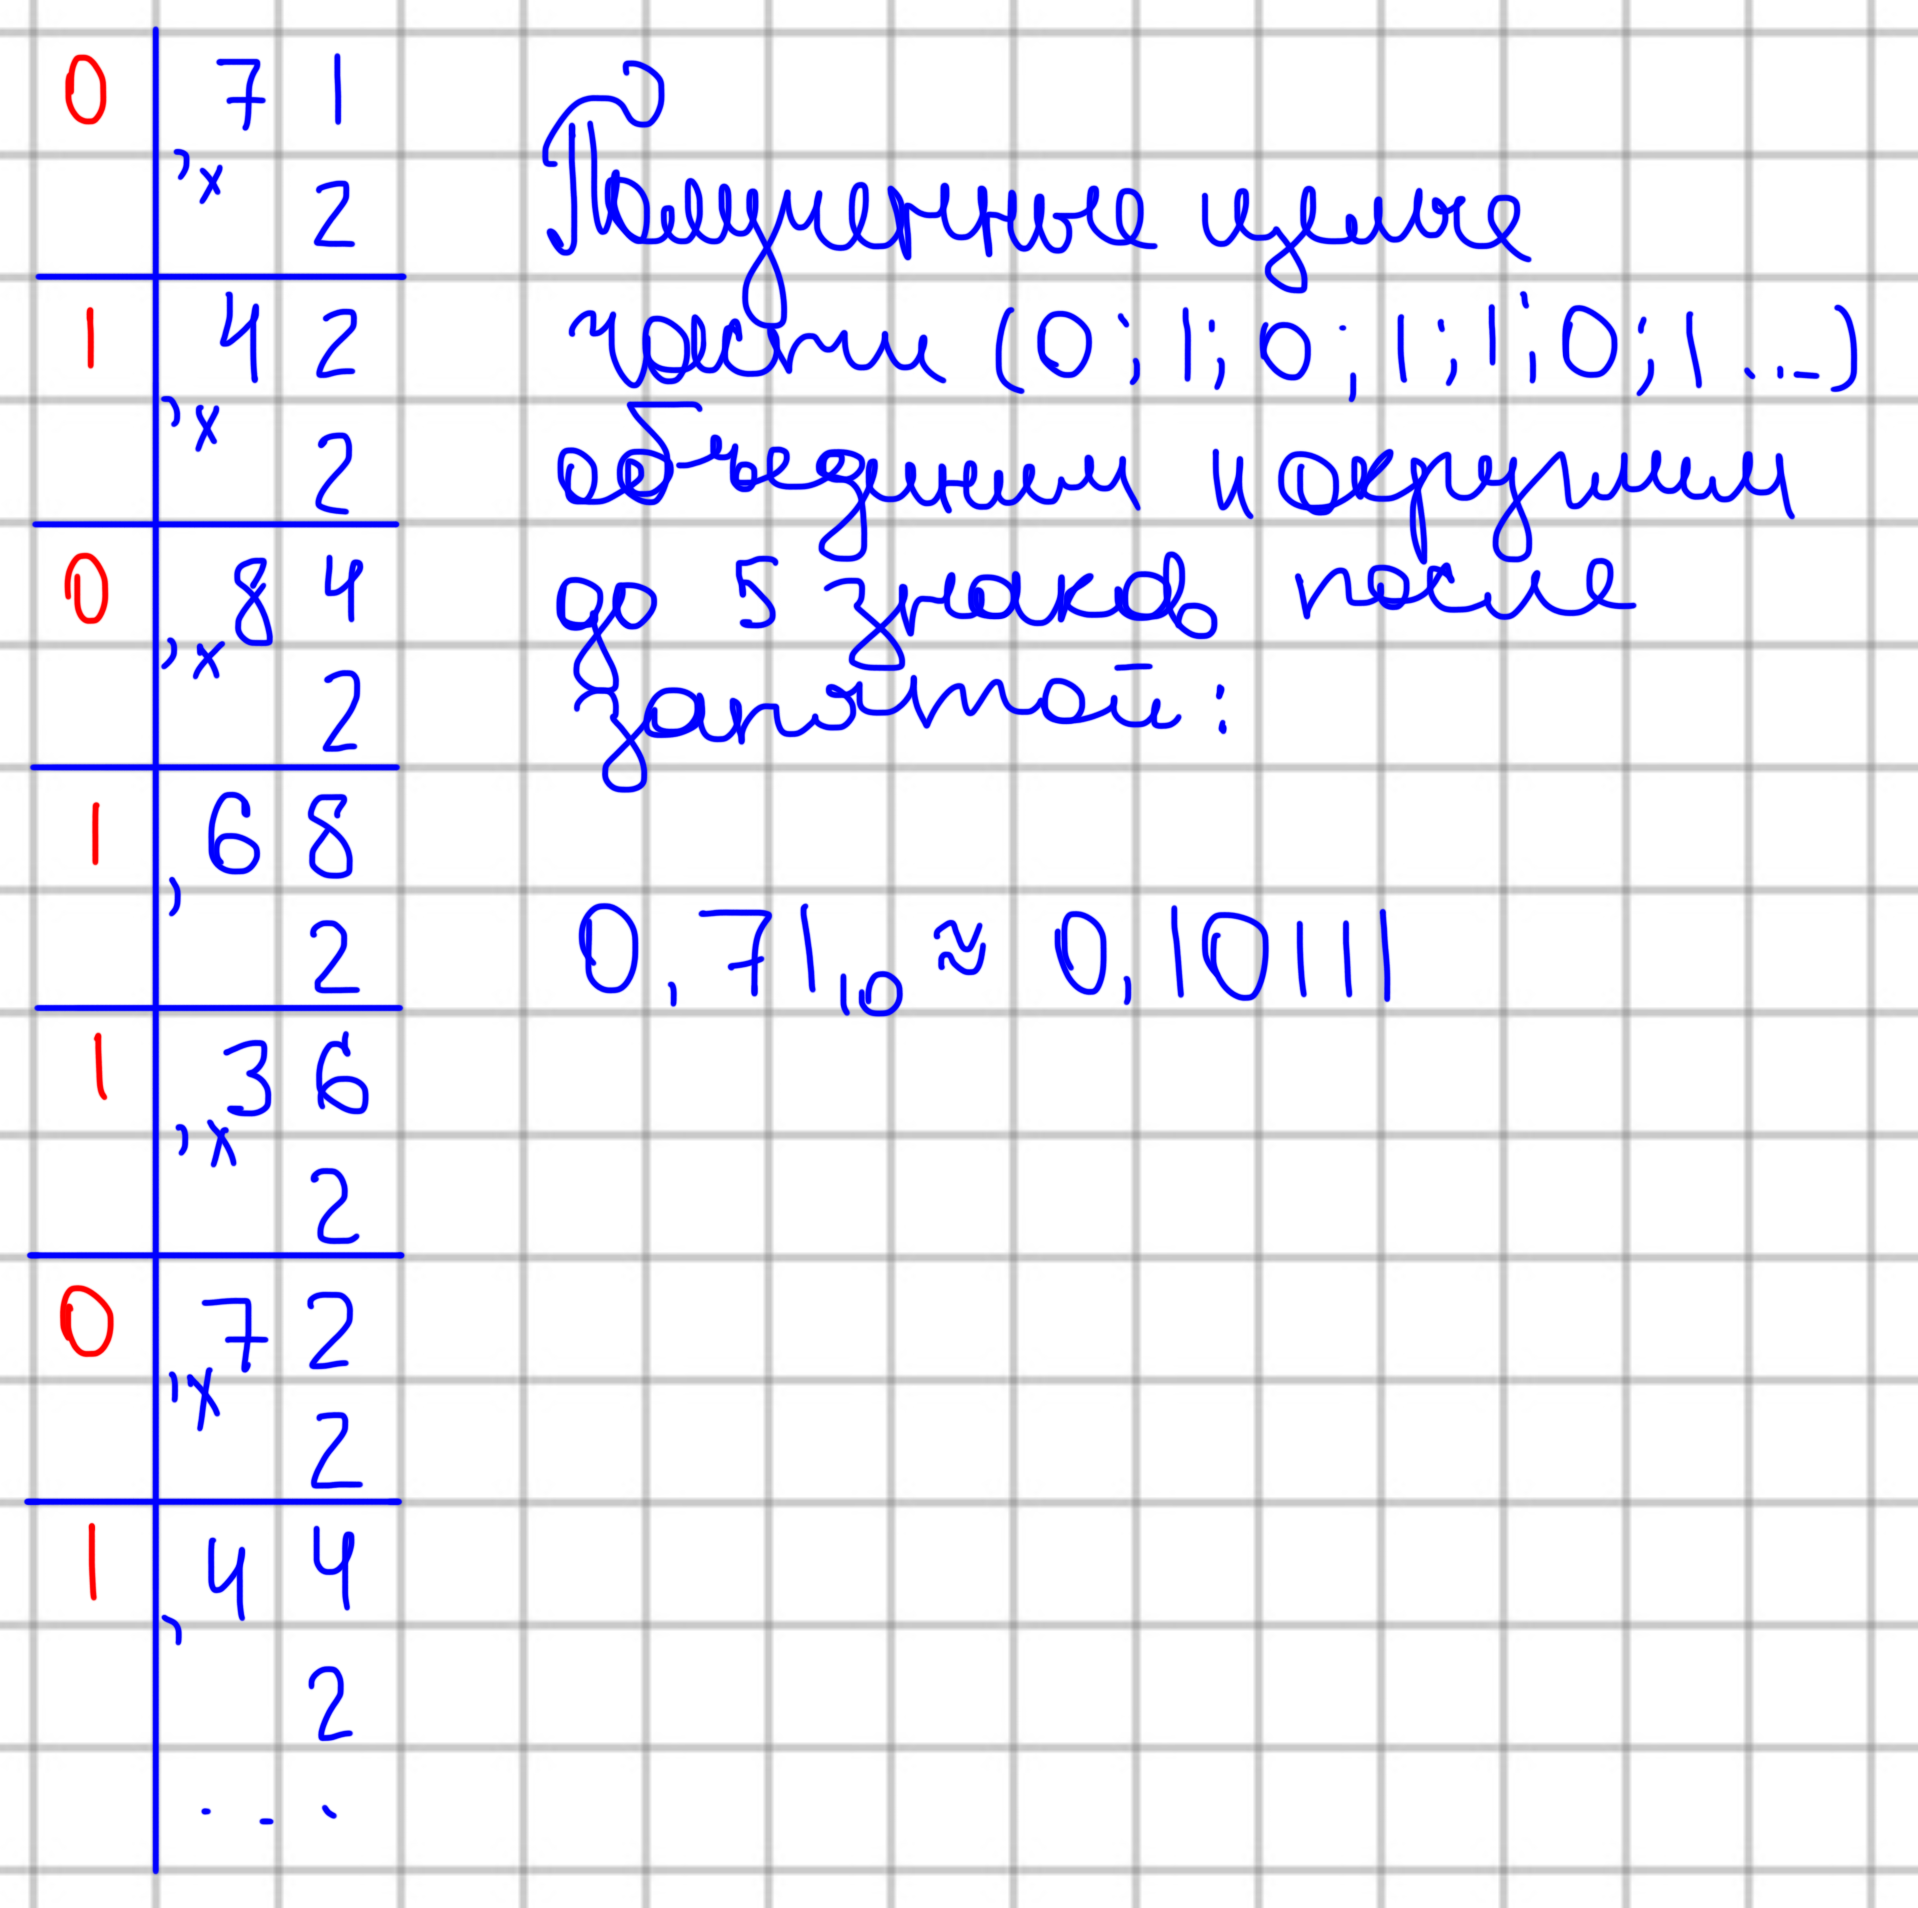 0 71
, × 2
1 42
, × 2
0 84
, × 2
1 68
, 2
1 36
, × 2
0 72
, × 2
1 44
, 2
...
Полученные целые
части (0; 1; 0; 1; 1; 0; 1 ...)
объединим и округлим
до 5 знаков после
запятой:
0,71₁₀ ≈ 0,10111